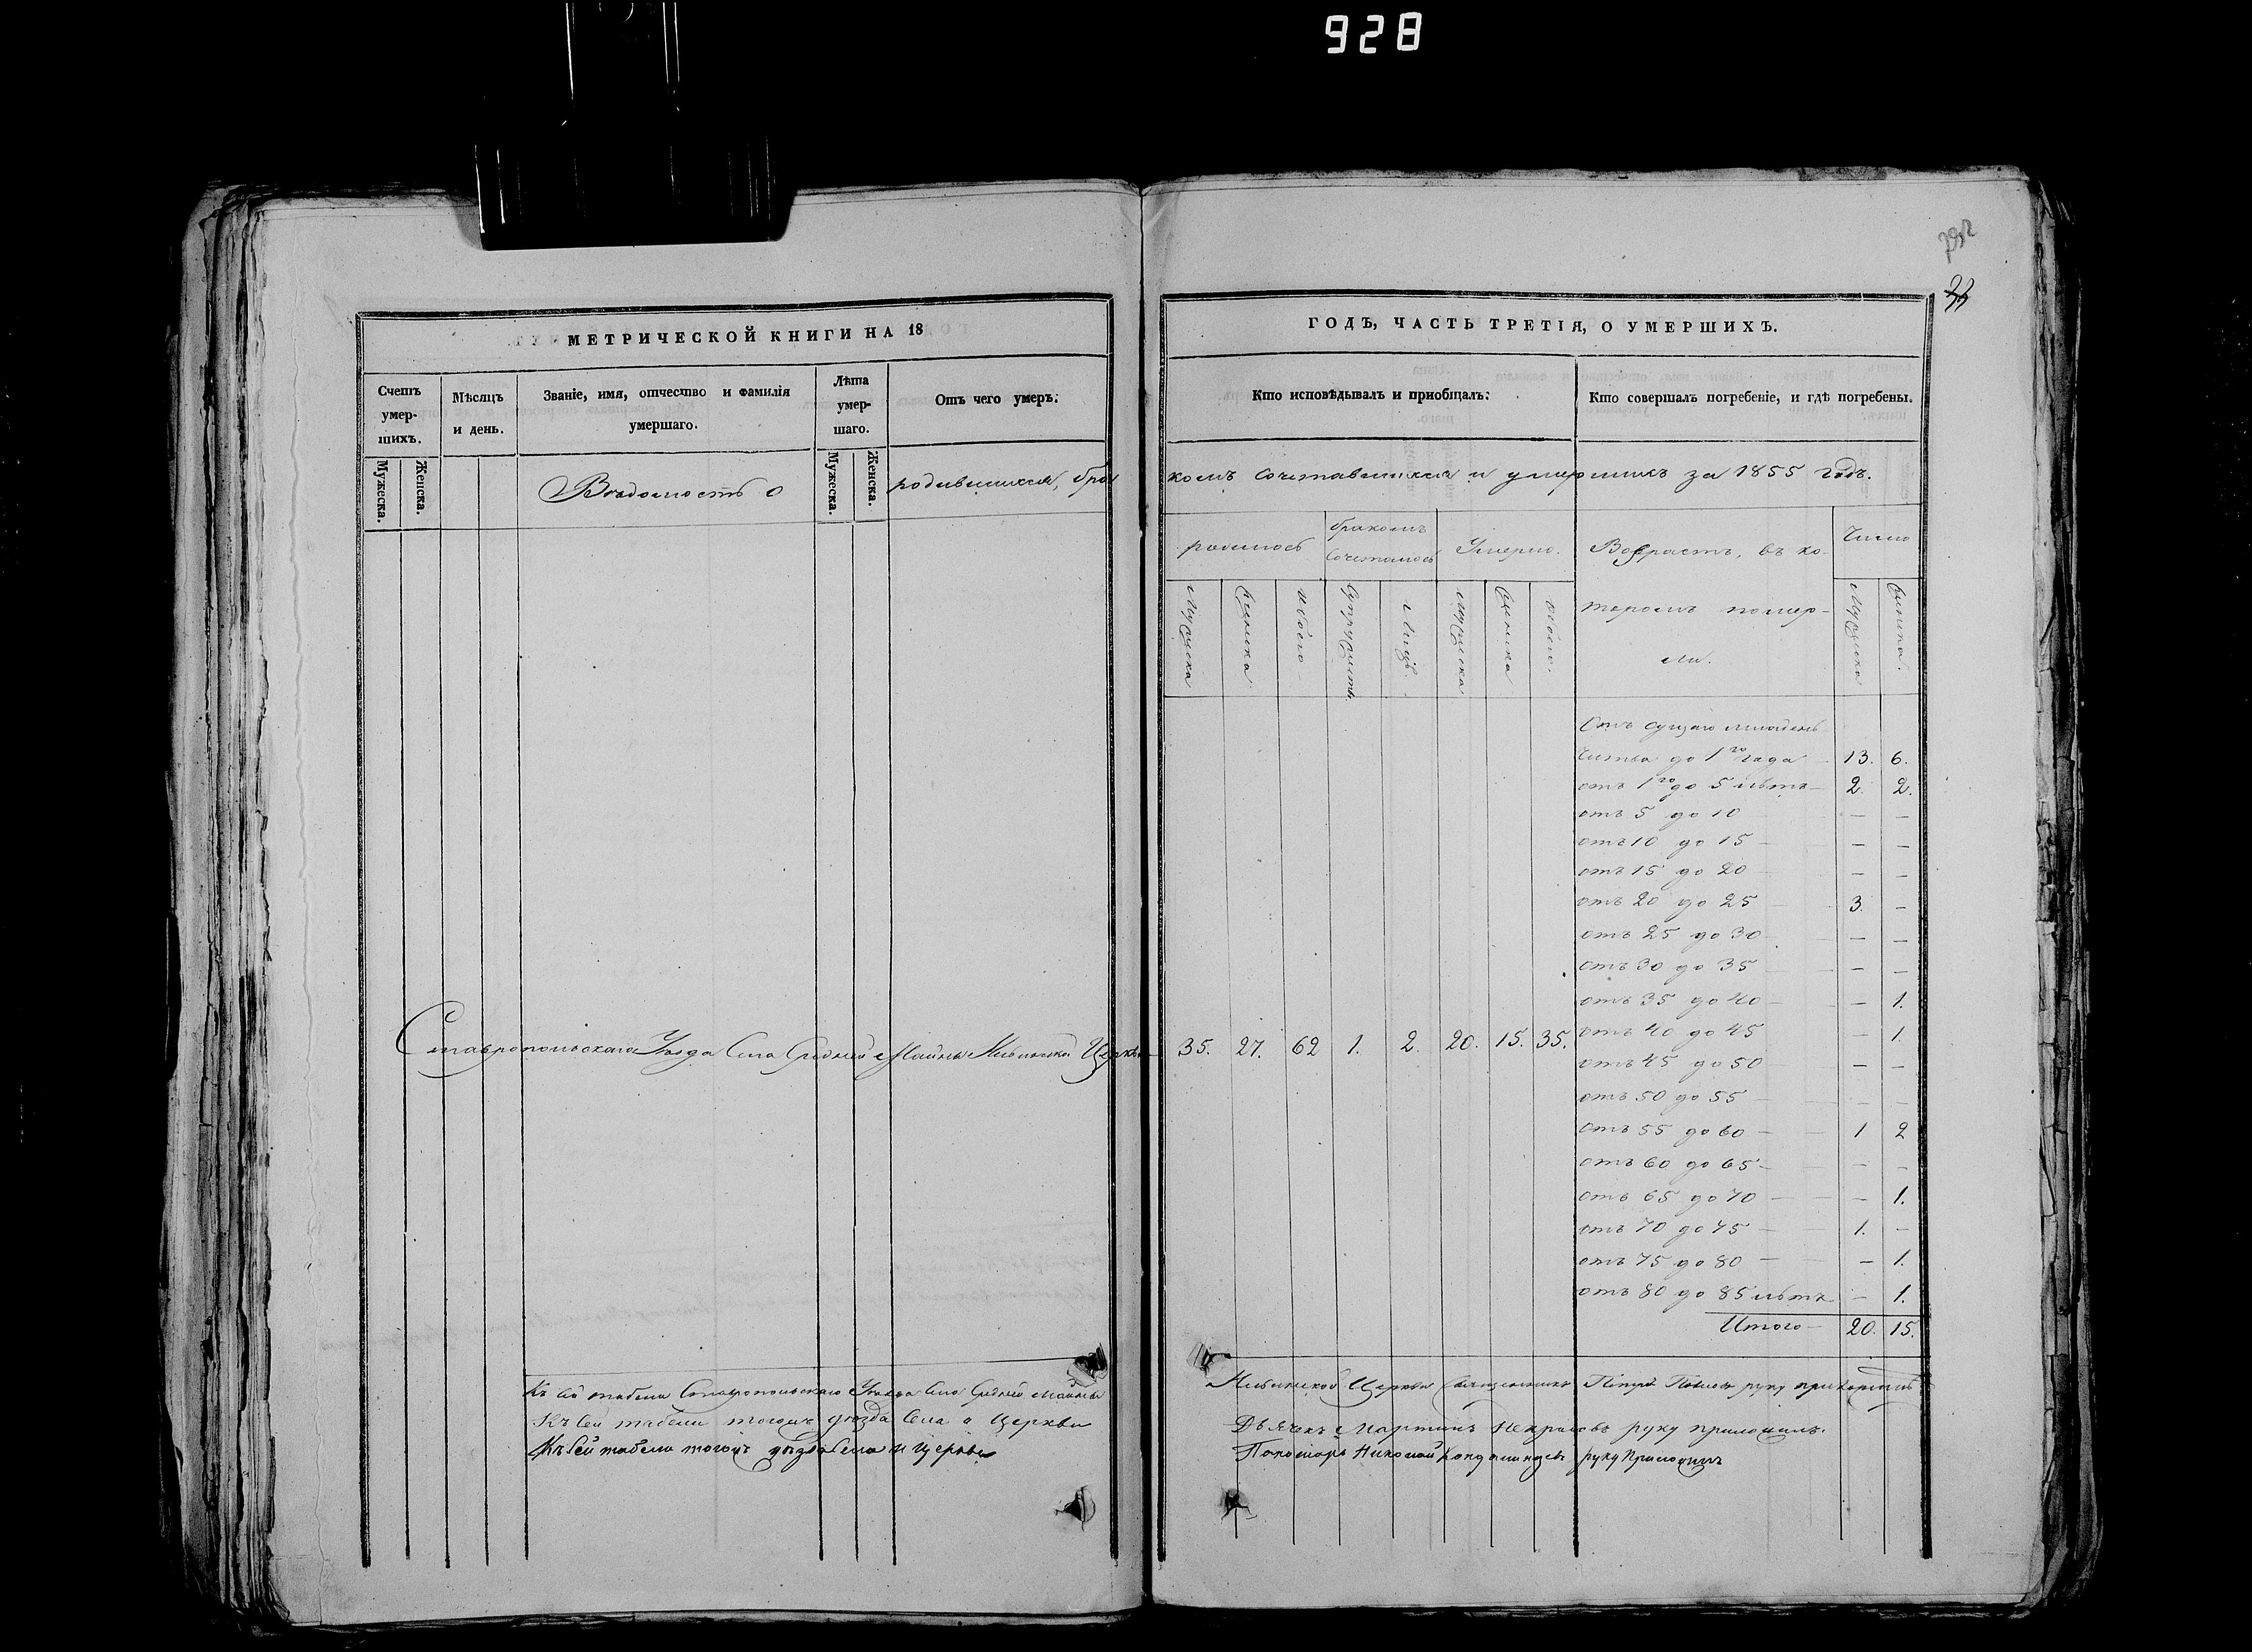 928
МЕТРИЧЕСКОЙ КНИГИ НА 18
Счетъ умершихъ.
Мужеска.
Женска.
Мѣсяцъ и день.
Званіе, имя, отчество и фамилія умершаго.
Лѣта умершаго.
Мужеска.
Женска.
Отъ чего умеръ.
Вѣдомость о родившихся, бра
Ставропольскаго Уѣзда Села Средней Майны Церкви
Къ сей табели Ставропольскаго Уѣзда Села Средней Майны
Къ сей табели тогожъ уѣзда Села и Церкви
Къ сей табели тогожъ уѣзда Села и Церкви
ГОДЪ, ЧАСТЬ ТРЕТІЯ, О УМЕРШИХЪ.
Кто исповѣдывалъ и пріобщалъ.
Кто совершалъ погребеніе, и гдѣ погребены.
комъ сочетавшихся и умершихъ за 1855 годъ.
родилось
Мужеска
Женска
Обоего
бракомъ сочеталось
Супружествъ
Лицъ.
Умерло.
Мужеска
Женска
Обоего.
Возрастъ, въ ко-
торомъ помер-
ли.
Число
Мужеска
Женска.
35. 27. 62 1. 2. 20. 15. 35.
Отъ сущаго младен
чества до 1го года 13. 6.
отъ 1го до 5 лѣтъ — 2. 2.
отъ 5 до 10 — —
отъ 10 до 15 — —
отъ 15 до 20 — —
отъ 20 до 25 3. —
отъ 25 до 30 — —
отъ 30 до 35 — —
отъ 35 до 40 — — 1.
отъ 40 до 45 — 1.
отъ 45 до 50 — —
отъ 50 до 55 — —
отъ 55 до 60 — 1 2
отъ 60 до 65 — — —
отъ 65 до 70 — — 1.
отъ 70 до 75 — 1. —
отъ 75 до 80 — — 1.
отъ 80 до 85 лѣтъ — 1.
Итого — 20. 15.
Церкви Священникъ Петръ руку приложилъ
Дьячекъ Мартинъ Некрасовъ руку приложилъ.
Пономарь Николай руку приложилъ